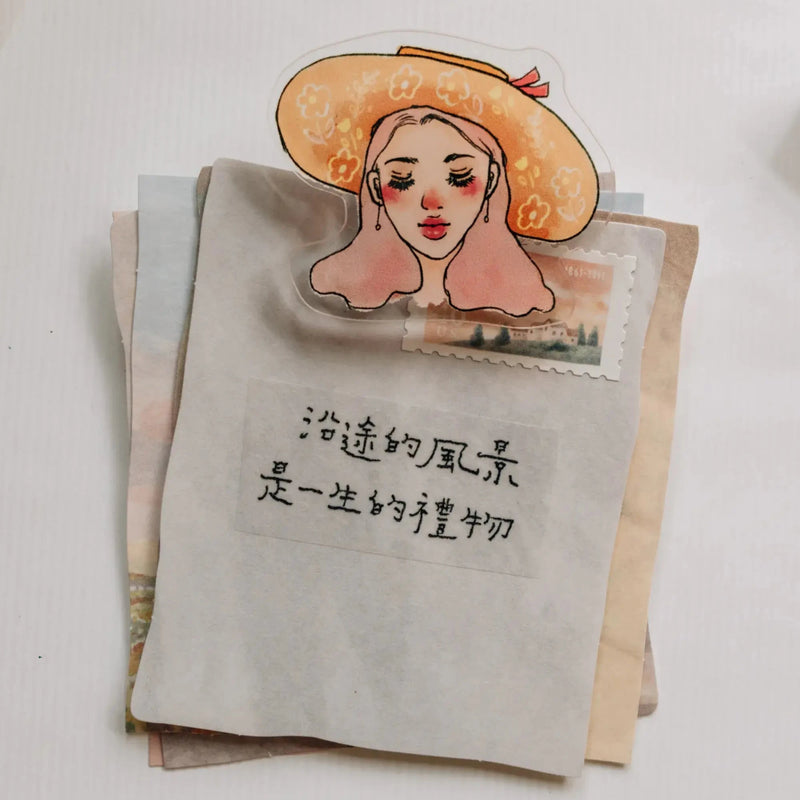 沿途的風景
是一生的禮物